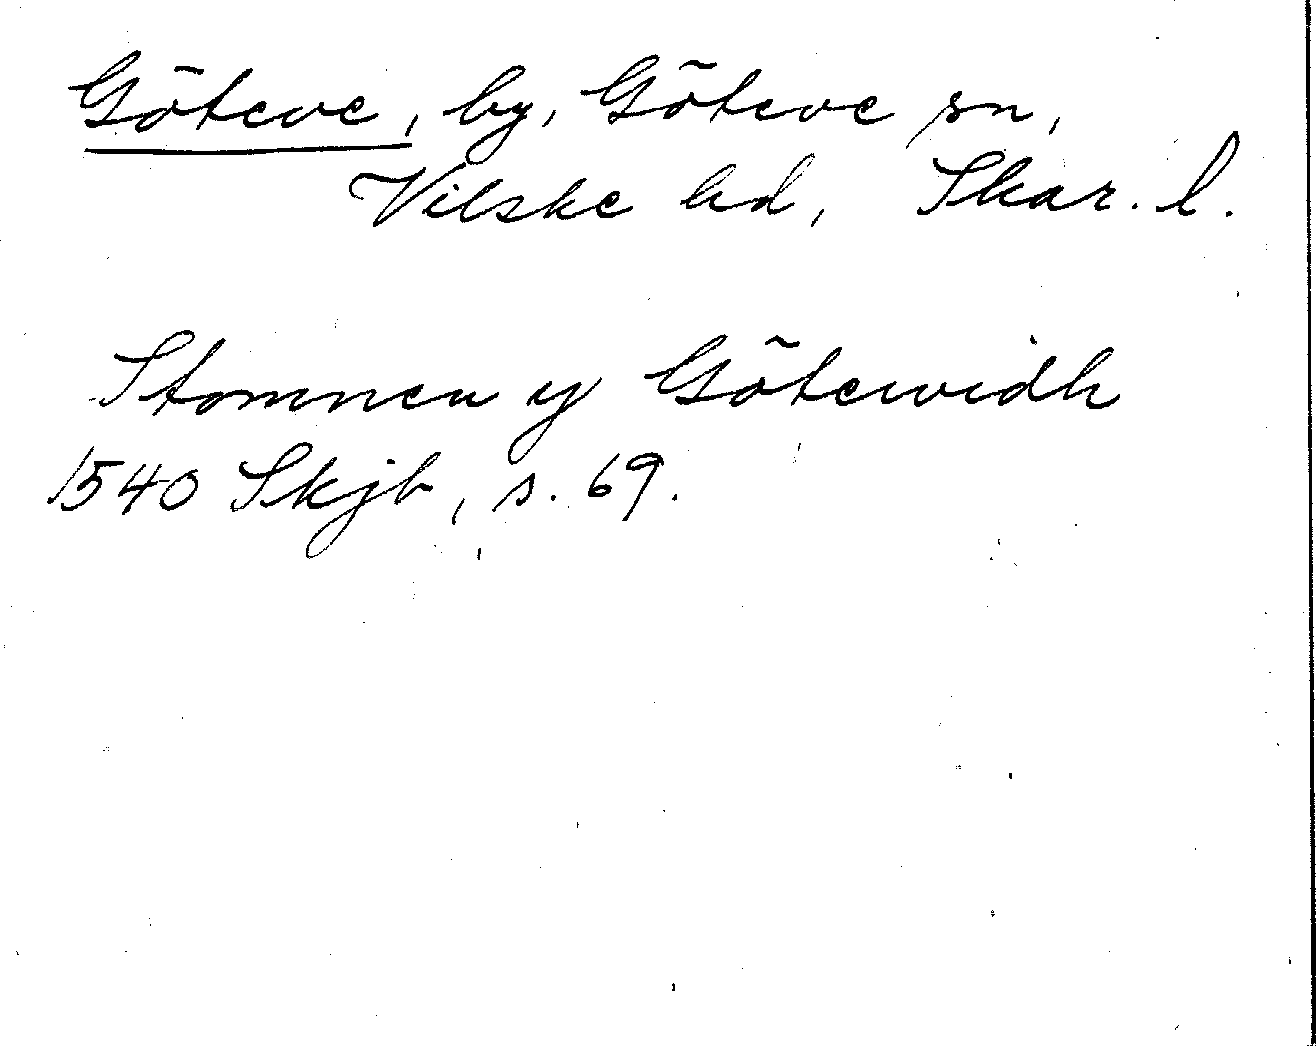 Göteve, by, Göteve sn,
Vilske hd, Skar. l.
Stomnen y Götewidh
1540 Skjb, s. 69.